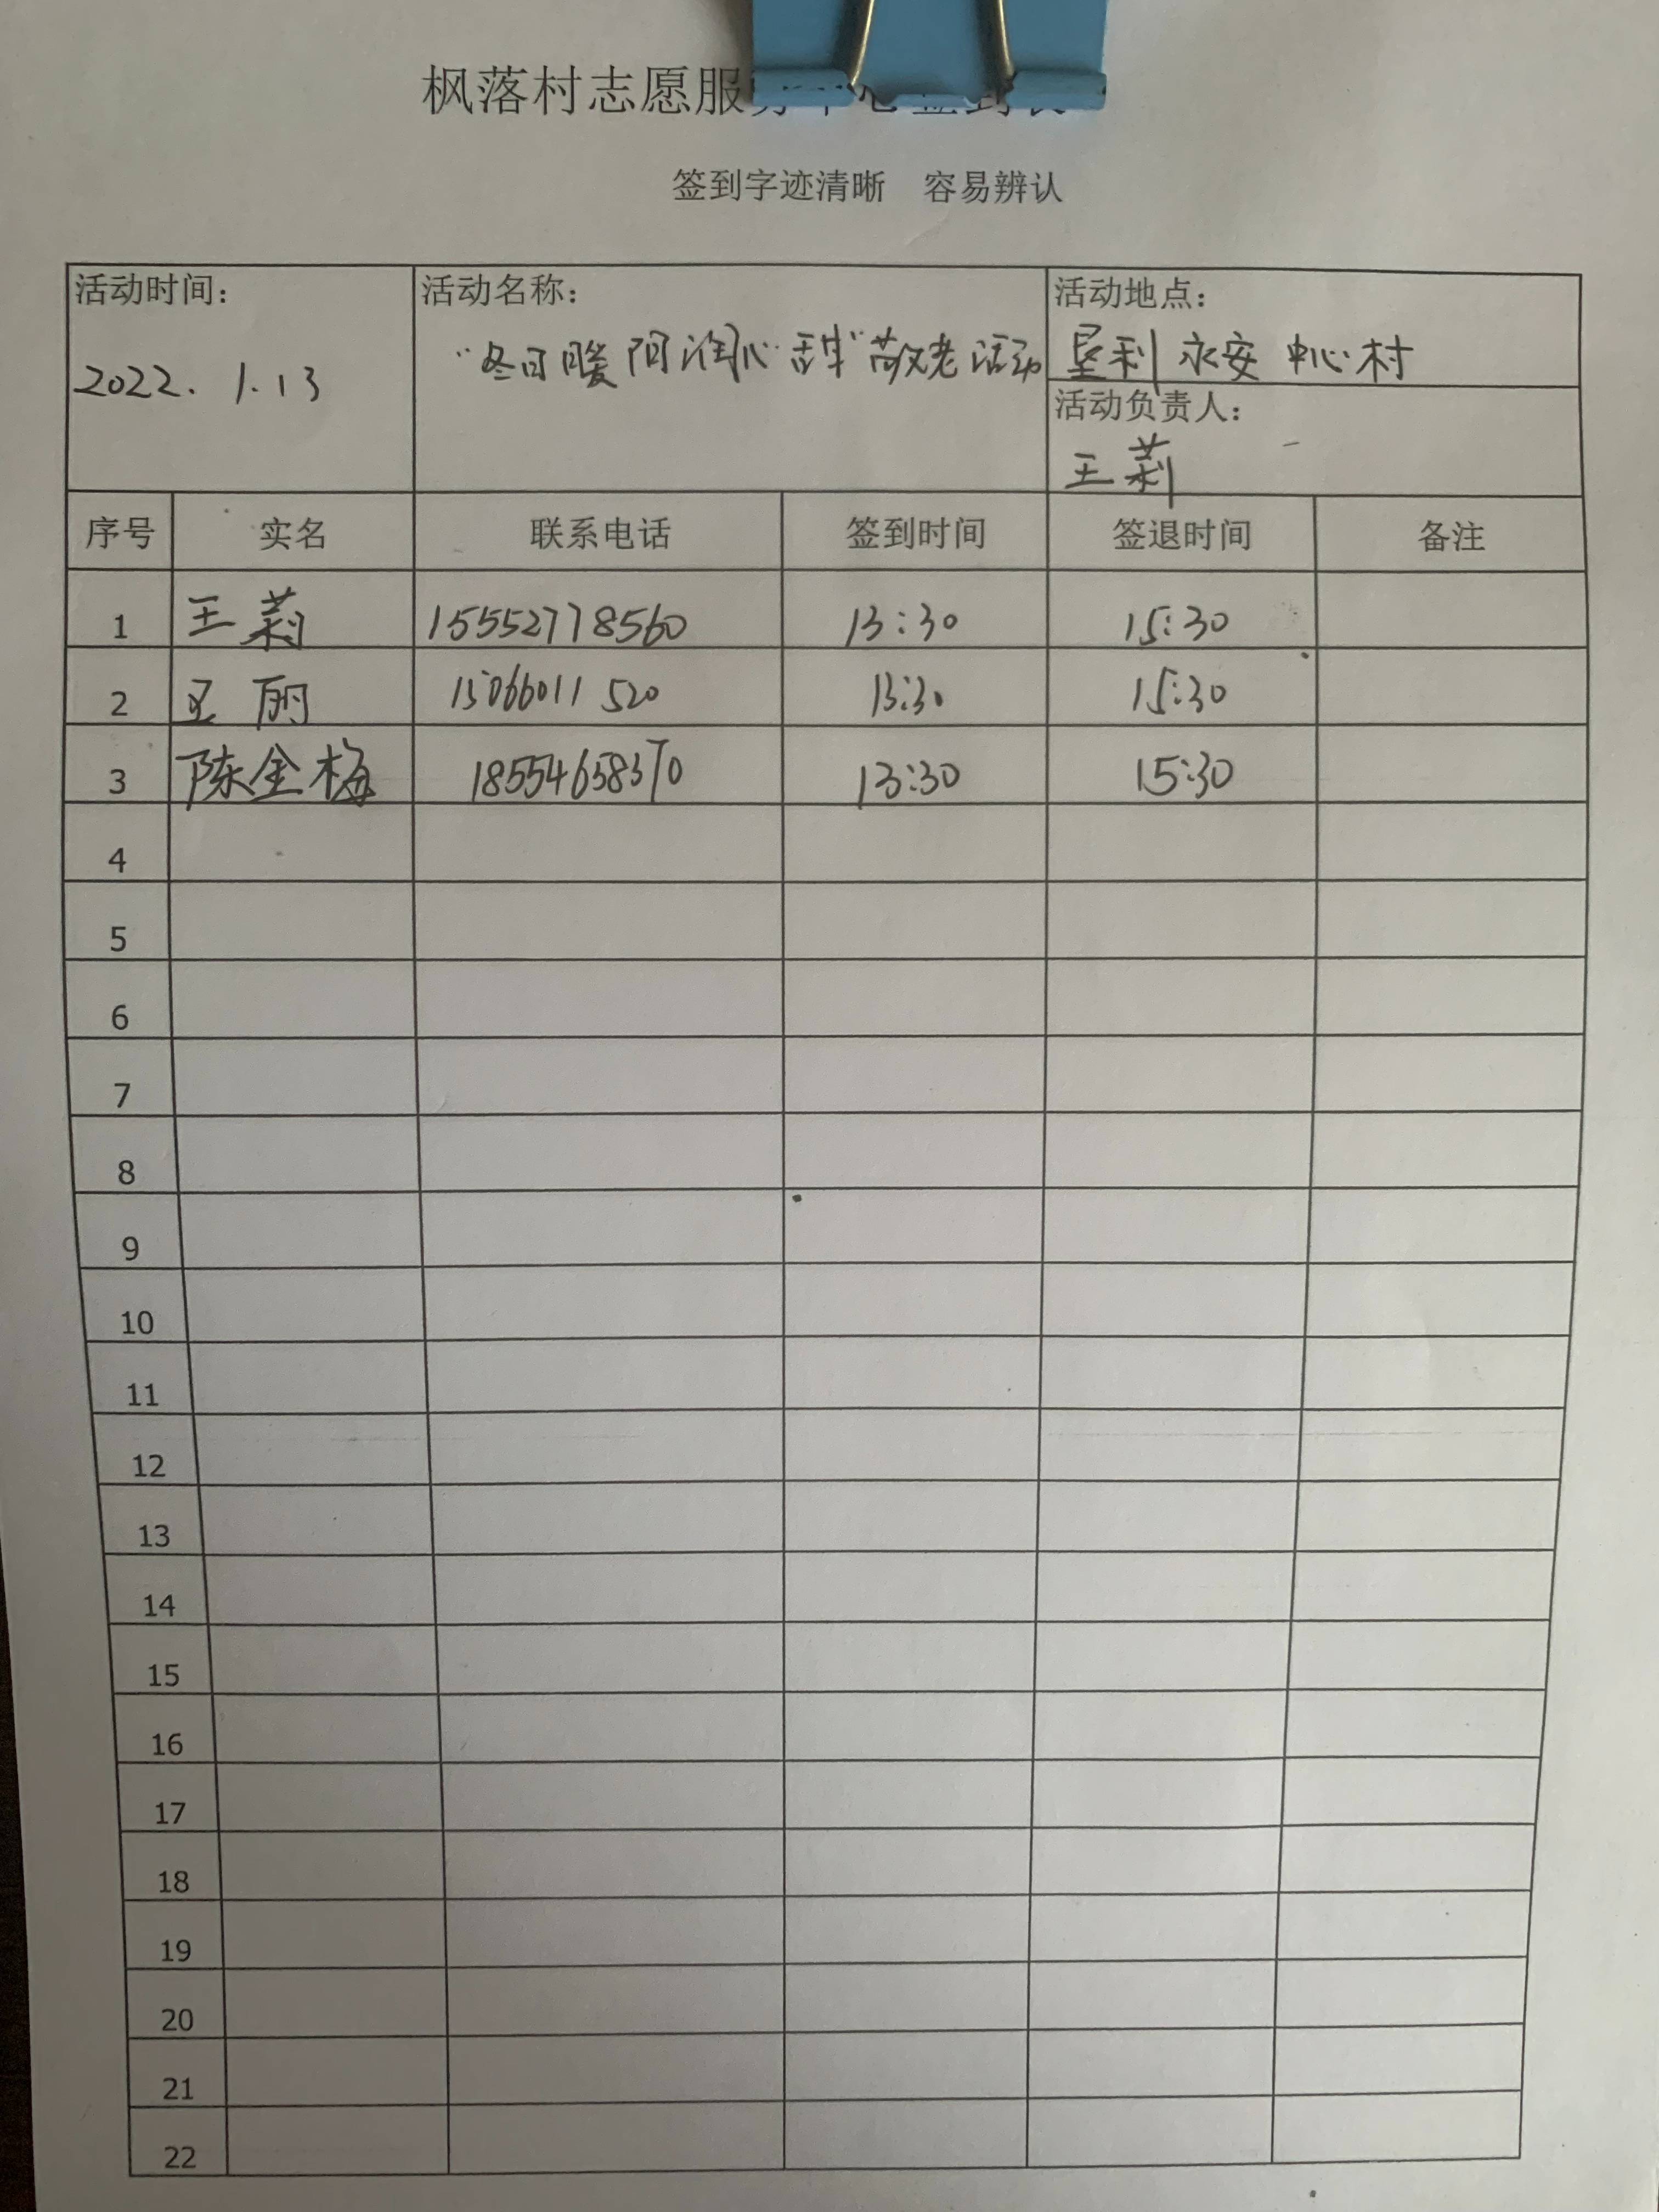 枫落村志愿服务中心签到表
签到字迹清晰 容易辨认
活动时间： 活动名称： 活动地点：
2022. 1.13 "冬日暖阳润心甜"敬老活动 垦利永安中心村
活动负责人：
王莉
序号 实名 联系电话 签到时间 签退时间 备注
1 王莉 15552778560 13:30 15:30
2 王丽 15066011520 13:30 15:30
3 陈金梅 18554658370 13:30 15:30
4
5
6
7
8
9
10
11
12
13
14
15
16
17
18
19
20
21
22